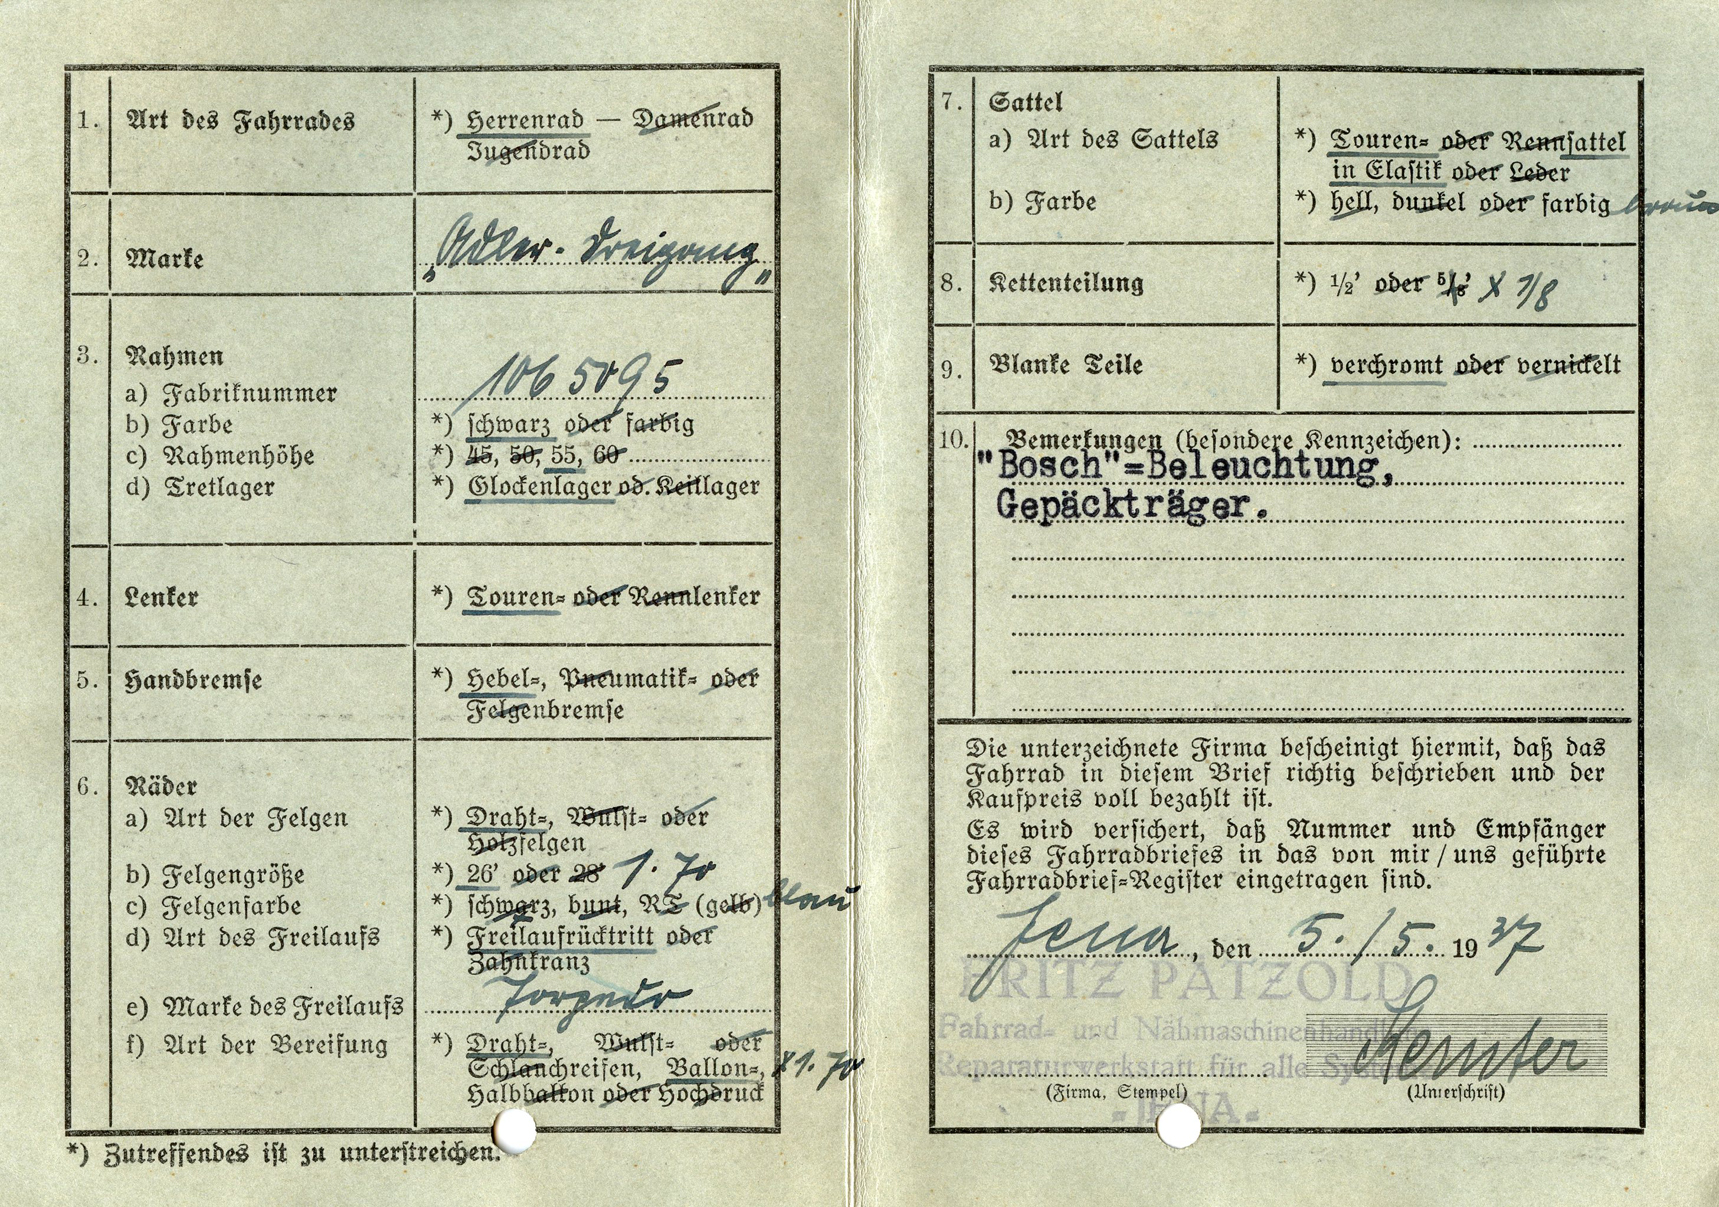 1. Art des Fahrrades *) Herrenrad — Damenrad
Jugendrad
2. Marke „Adler-Dreigang"
3. Rahmen
a) Fabriknummer 1065095
b) Farbe *) schwarz oder farbig
c) Rahmenhöhe *) 45, 50, 55, 60
d) Tretlager *) Glockenlager od. Keillager
4. Lenker *) Touren= oder Rennlenker
5. Handbremse *) Hebel=, Pneumatik= oder
Felgenbremse
6. Räder
a) Art der Felgen *) Draht=, Wulst= oder
Holzfelgen
b) Felgengröße *) 26' oder 28' 1.70
c) Felgenfarbe *) schwarz, bunt, RT (gelb) blau
d) Art des Freilaufs *) Freilaufrücktritt oder
Zahnkranz
e) Marke des Freilaufs Torpedo
f) Art der Bereifung *) Draht=, Wulst= oder
Schlauchreifen, Ballon=, x1.70
Halbballon oder Hochdruck
*) Zutreffendes ist zu unterstreichen.
7. Sattel
a) Art des Sattels *) Touren= oder Rennsattel
in Elastik oder Leder
b) Farbe *) hell, dunkel oder farbig braun
8. Kettenteilung *) 1/2' oder 5/8' x 1/8
9. Blanke Teile *) verchromt oder vernickelt
10. Bemerkungen (besondere Kennzeichen):
"Bosch"=Beleuchtung,
Gepäckträger.
Die unterzeichnete Firma bescheinigt hiermit, daß das
Fahrrad in diesem Brief richtig beschrieben und der
Kaufpreis voll bezahlt ist.
Es wird versichert, daß Nummer und Empfänger
dieses Fahrradbriefes in das von mir/uns geführte
Fahrradbrief=Register eingetragen sind.
Jena, den 5./5. 1937
FRITZ PATZOLD
Fahrrad- und Nähmaschinenhandlung
Reparaturwerkstatt für alle Systeme
(Firma, Stempel) (Unterschrift)
-JENA-